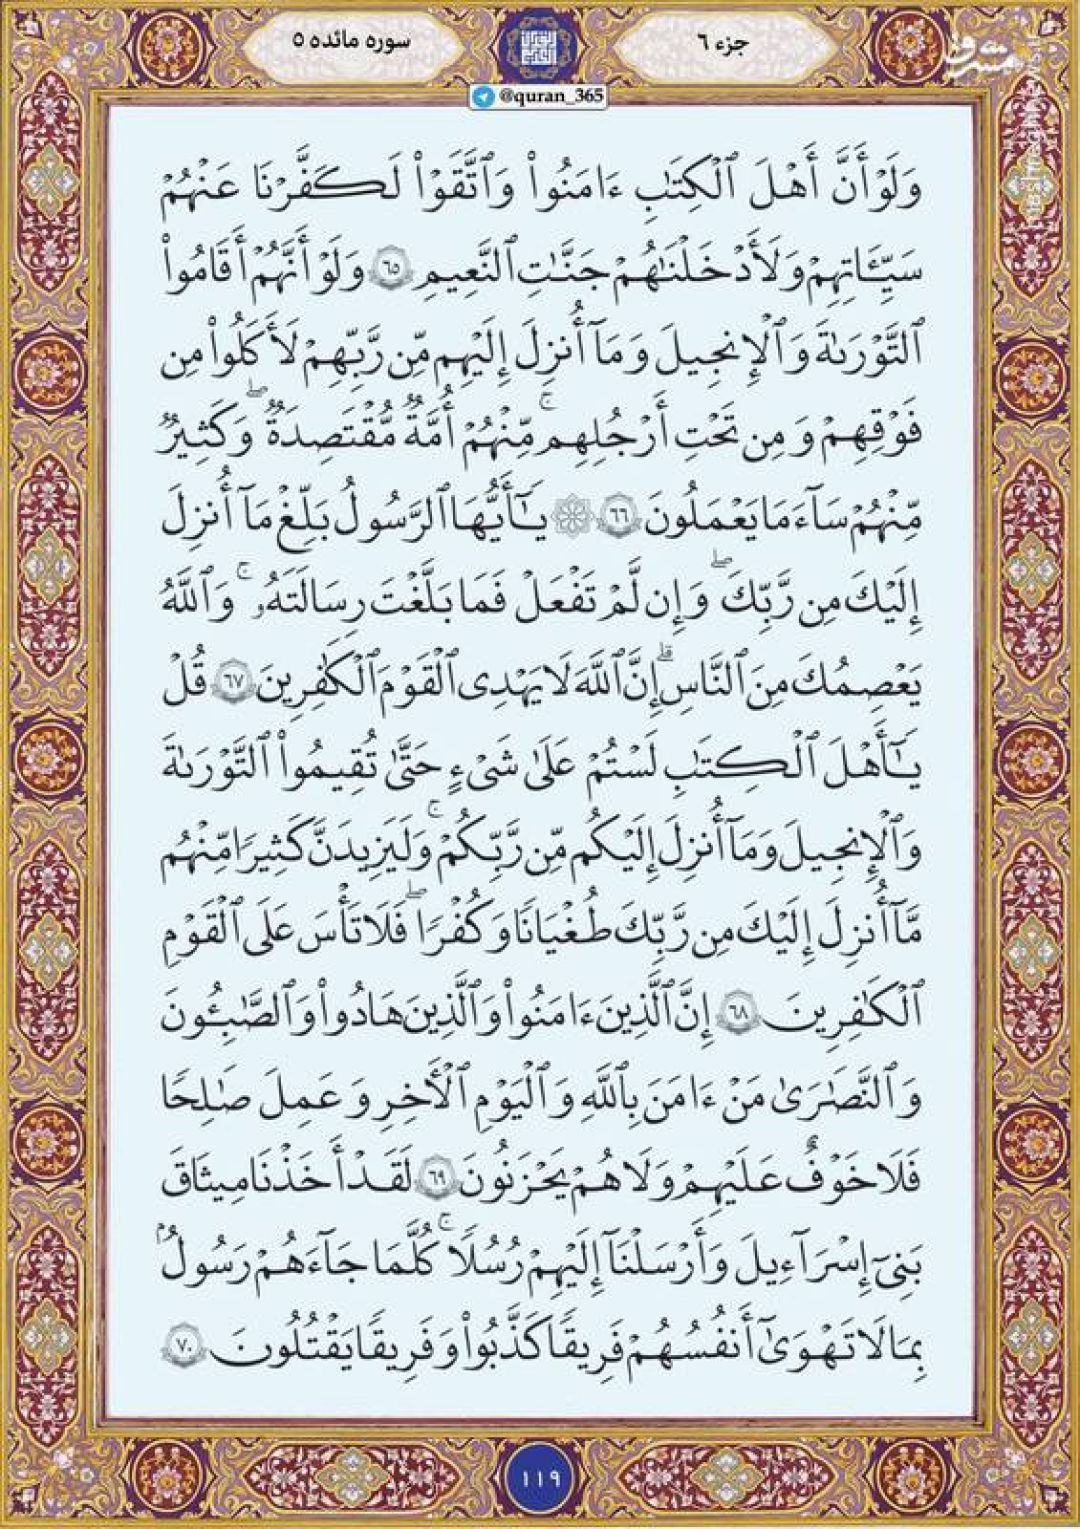 جزء ۶
سوره مائده ۵
@quran_365
وَلَوْ أَنَّ أَهْلَ ٱلْكِتَٰبِ ءَامَنُوا۟ وَٱتَّقَوْا۟ لَكَفَّرْنَا عَنْهُمْ
سَيِّـَٔاتِهِمْ وَلَأَدْخَلْنَٰهُمْ جَنَّٰتِ ٱلنَّعِيمِ ٦٥ وَلَوْ أَنَّهُمْ أَقَامُوا۟
ٱلتَّوْرَىٰةَ وَٱلْإِنجِيلَ وَمَآ أُنزِلَ إِلَيْهِم مِّن رَّبِّهِمْ لَأَكَلُوا۟ مِن
فَوْقِهِمْ وَمِن تَحْتِ أَرْجُلِهِم ۚ مِّنْهُمْ أُمَّةٌ مُّقْتَصِدَةٌ ۖ وَكَثِيرٌ
مِّنْهُمْ سَآءَ مَا يَعْمَلُونَ ٦٦ ۞ يَٰٓأَيُّهَا ٱلرَّسُولُ بَلِّغْ مَآ أُنزِلَ
إِلَيْكَ مِن رَّبِّكَ ۖ وَإِن لَّمْ تَفْعَلْ فَمَا بَلَّغْتَ رِسَالَتَهُۥ ۚ وَٱللَّهُ
يَعْصِمُكَ مِنَ ٱلنَّاسِ ۗ إِنَّ ٱللَّهَ لَا يَهْدِى ٱلْقَوْمَ ٱلْكَٰفِرِينَ ٦٧ قُلْ
يَٰٓأَهْلَ ٱلْكِتَٰبِ لَسْتُمْ عَلَىٰ شَىْءٍ حَتَّىٰ تُقِيمُوا۟ ٱلتَّوْرَىٰةَ
وَٱلْإِنجِيلَ وَمَآ أُنزِلَ إِلَيْكُم مِّن رَّبِّكُمْ ۗ وَلَيَزِيدَنَّ كَثِيرًا مِّنْهُم
مَّآ أُنزِلَ إِلَيْكَ مِن رَّبِّكَ طُغْيَٰنًا وَكُفْرًا ۖ فَلَا تَأْسَ عَلَى ٱلْقَوْمِ
ٱلْكَٰفِرِينَ ٦٨ إِنَّ ٱلَّذِينَ ءَامَنُوا۟ وَٱلَّذِينَ هَادُوا۟ وَٱلصَّٰبِـُٔونَ
وَٱلنَّصَٰرَىٰ مَنْ ءَامَنَ بِٱللَّهِ وَٱلْيَوْمِ ٱلْأَخِرِ وَعَمِلَ صَٰلِحًا
فَلَا خَوْفٌ عَلَيْهِمْ وَلَا هُمْ يَحْزَنُونَ ٦٩ لَقَدْ أَخَذْنَا مِيثَٰقَ
بَنِىٓ إِسْرَٰٓءِيلَ وَأَرْسَلْنَآ إِلَيْهِمْ رُسُلًا ۖ كُلَّمَا جَآءَهُمْ رَسُولٌۢ
بِمَا لَا تَهْوَىٰٓ أَنفُسُهُمْ فَرِيقًا كَذَّبُوا۟ وَفَرِيقًا يَقْتُلُونَ ٧٠
١١٩